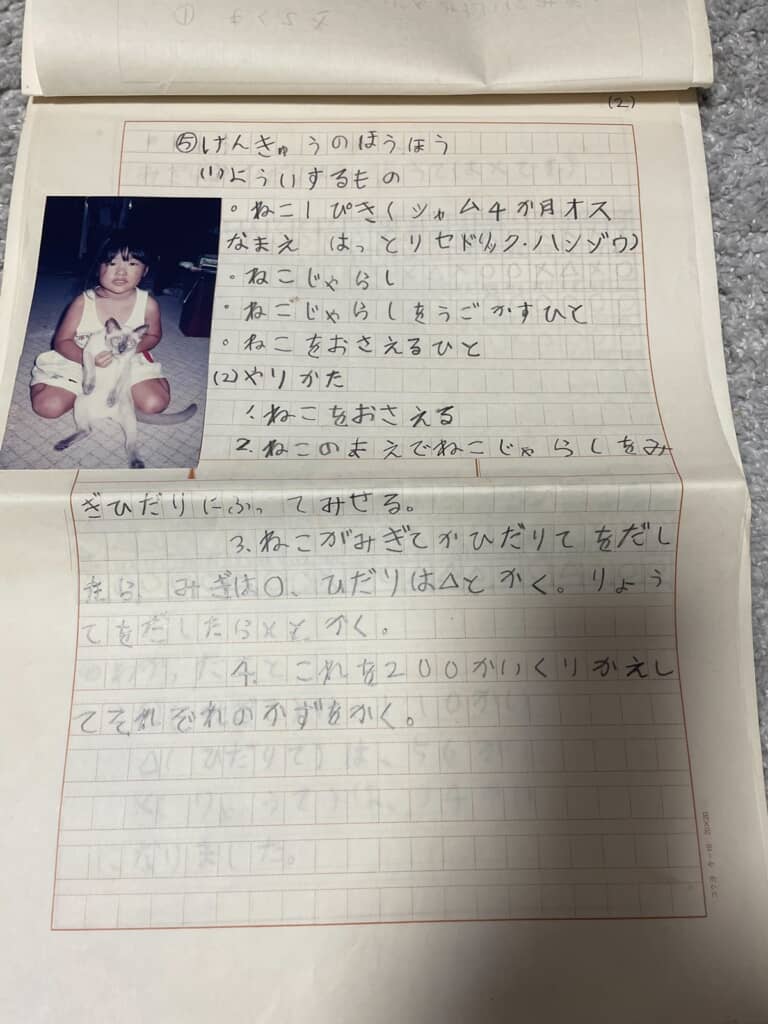 (2)
⑤けんきゅうのほうほう
(1)よういするもの
。ねこ1ぴきくシャム4か月オス
なまえ はっとりセドリック・ハンゾウ)
・ねこじゃらし
・ねこじゃらしをうごかすひと
。ねこをおさえるひと
(2)やりかた
1.ねこをおさえる
2.ねこのまえでねこじゃらしをみ
ぎひだりにふってみせる。
3.ねこがみぎてかひだりてをだし
たら、みぎは○、ひだりは△とかく。りょう
てをだしたら×とかく。
4.これを200かいくりかえし
てそれぞれのかずをかく。
コクヨ ケー10 20×20